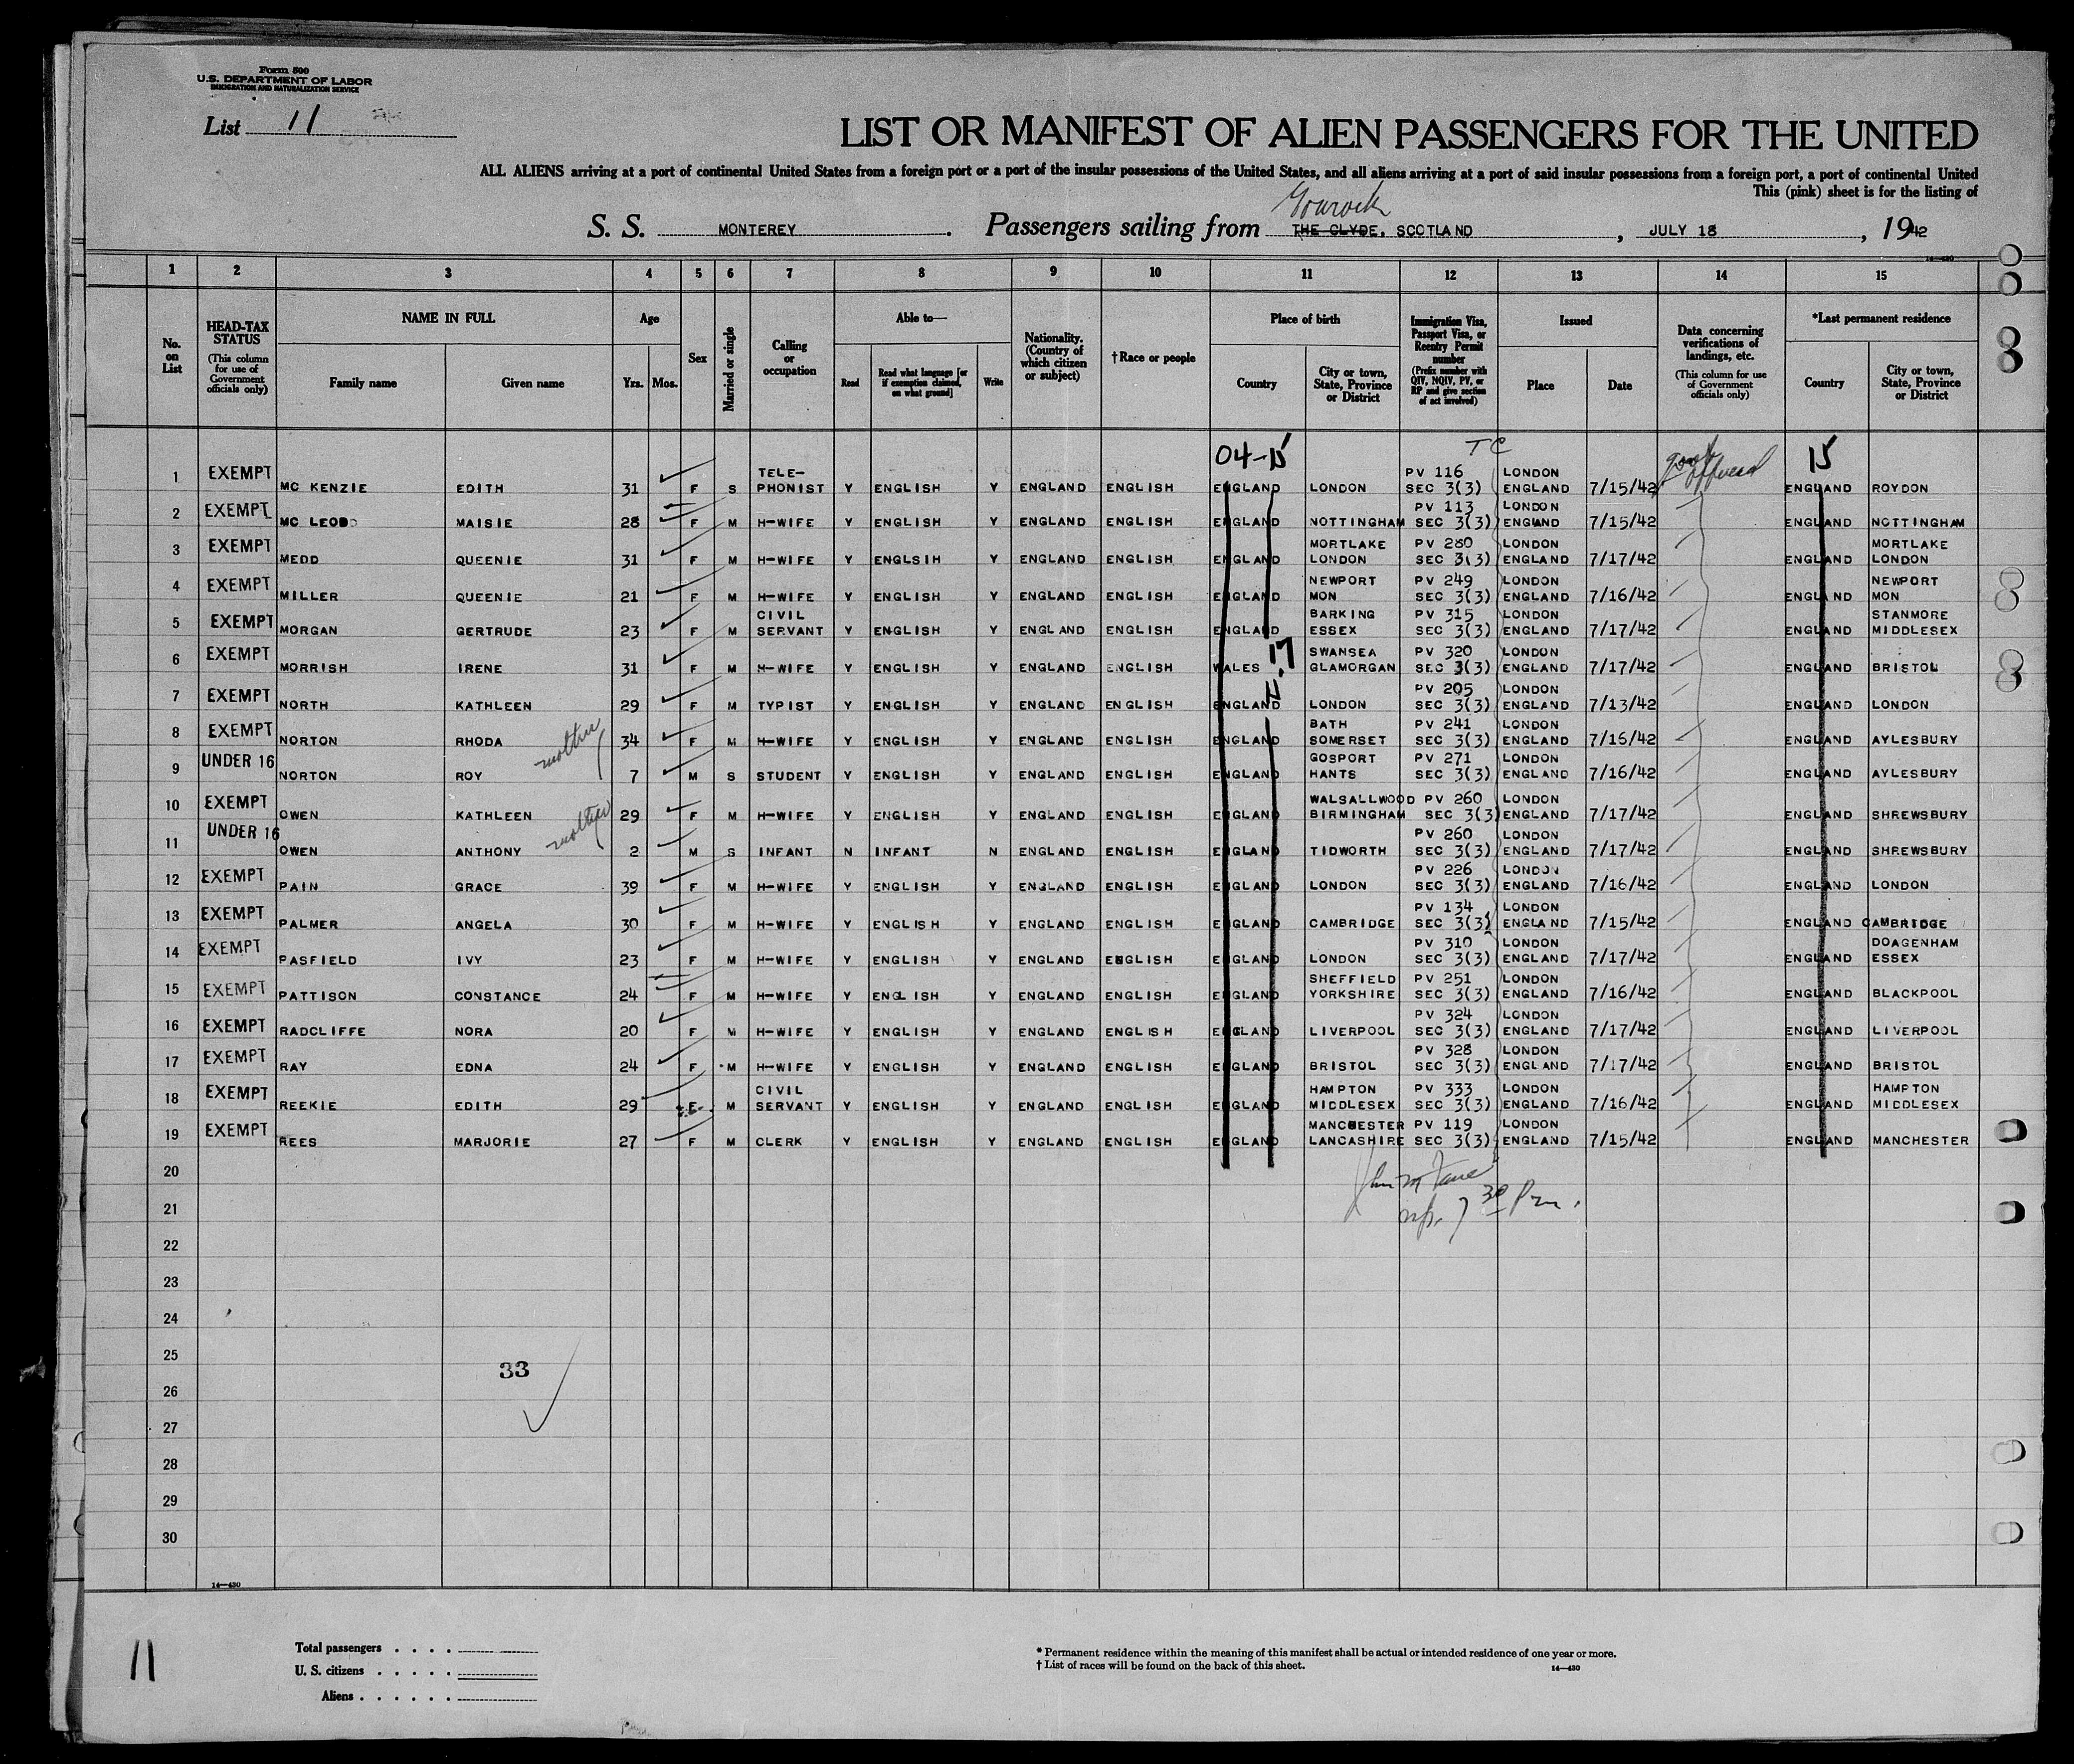 Form 500
U.S. DEPARTMENT OF LABOR
IMMIGRATION AND NATURALIZATION SERVICE
List 11
LIST OR MANIFEST OF ALIEN PASSENGERS FOR THE UNITED
ALL ALIENS arriving at a port of continental United States from a foreign port or a port of the insular possessions of the United States, and all aliens arriving at a port of said insular possessions from a foreign port, a port of continental United
This (pink) sheet is for the listing of
Gourock
S. S. MONTEREY. Passengers sailing from THE CLYDE, SCOTLAND, JULY 18, 1942
14—430
1 2 3 4 5 6 7 8 9 10 11 12 13 14 15
No. on List
HEAD-TAX STATUS (This column for use of Government officials only)
NAME IN FULL
Family name Given name
Age
Yrs. Mos.
Sex
Married or single
Calling or occupation
Able to—
Read Read what language [or if exemption claimed, on what ground] Write
Nationality. (Country of which citizen or subject)
†Race or people
Place of birth
Country City or town, State, Province or District
Immigration Visa, Passport Visa, or Reentry Permit number (Prefix number with QIV, NQIV, PV, or RP and give section of act involved)
Issued
Place Date
Data concerning verifications of landings, etc. (This column for use of Government officials only)
*Last permanent residence
Country City or town, State, Province or District
04-15 TC 15
TELE- PV 116 LONDON
1 EXEMPT MC KENZIE EDITH 31 F S PHONIST Y ENGLISH Y ENGLAND ENGLISH ENGLAND LONDON SEC 3(3) ENGLAND 7/15/42 ENGLAND ROYDON
PV 113 LONDON
2 EXEMPT MC LEOD MAISIE 28 F M H-WIFE Y ENGLISH Y ENGLAND ENGLISH ENGLAND NOTTINGHAM SEC 3(3) ENGLAND 7/15/42 ENGLAND NOTTINGHAM
MORTLAKE PV 280 LONDON MORTLAKE
3 EXEMPT MEDD QUEENIE 31 F M H-WIFE Y ENGLSIH Y ENGLAND ENGLISH ENGLAND LONDON SEC 3(3) ENGLAND 7/17/42 ENGLAND LONDON
NEWPORT PV 249 LONDON NEWPORT
4 EXEMPT MILLER QUEENIE 21 F M H-WIFE Y ENGLISH Y ENGLAND ENGLISH ENGLAND MON SEC 3(3) ENGLAND 7/16/42 ENGLAND MON
CIVIL BARKING PV 315 LONDON STANMORE
5 EXEMPT MORGAN GERTRUDE 23 F M SERVANT Y ENGLISH Y ENGLAND ENGLISH ENGLAND ESSEX SEC 3(3) ENGLAND 7/17/42 ENGLAND MIDDLESEX
17 SWANSEA PV 320 LONDON
6 EXEMPT MORRISH IRENE 31 F M H-WIFE Y ENGLISH Y ENGLAND ENGLISH WALES GLAMORGAN SEC 3(3) ENGLAND 7/17/42 ENGLAND BRISTOL
PV 205 LONDON
7 EXEMPT NORTH KATHLEEN 29 F M TYPIST Y ENGLISH Y ENGLAND ENGLISH ENGLAND LONDON SEC 3(3) ENGLAND 7/13/42 ENGLAND LONDON
BATH PV 241 LONDON
8 EXEMPT NORTON RHODA mother 34 F M H-WIFE Y ENGLISH Y ENGLAND ENGLISH ENGLAND SOMERSET SEC 3(3) ENGLAND 7/16/42 ENGLAND AYLESBURY
GOSPORT PV 271 LONDON
9 UNDER 16 NORTON ROY 7 M S STUDENT Y ENGLISH Y ENGLAND ENGLISH ENGLAND HANTS SEC 3(3) ENGLAND 7/16/42 ENGLAND AYLESBURY
WALSALLWOOD PV 260 LONDON
10 EXEMPT OWEN KATHLEEN mother 29 F M H-WIFE Y ENGLISH Y ENGLAND ENGLISH ENGLAND BIRMINGHAM SEC 3(3) ENGLAND 7/17/42 ENGLAND SHREWSBURY
PV 260 LONDON
11 UNDER 16 OWEN ANTHONY 2 M S INFANT N INFANT N ENGLAND ENGLISH ENGLAND TIDWORTH SEC 3(3) ENGLAND 7/17/42 ENGLAND SHREWSBURY
PV 226 LONDON
12 EXEMPT PAIN GRACE 39 F M H-WIFE Y ENGLISH Y ENGLAND ENGLISH ENGLAND LONDON SEC 3(3) ENGLAND 7/16/42 ENGLAND LONDON
PV 134 LONDON
13 EXEMPT PALMER ANGELA 30 F M H-WIFE Y ENGLISH Y ENGLAND ENGLISH ENGLAND CAMBRIDGE SEC 3(3) ENGLAND 7/15/42 ENGLAND CAMBRIDGE
PV 310 LONDON DOAGENHAM
14 EXEMPT PASFIELD IVY 23 F M H-WIFE Y ENGLISH Y ENGLAND ENGLISH ENGLAND LONDON SEC 3(3) ENGLAND 7/17/42 ENGLAND ESSEX
SHEFFIELD PV 251 LONDON
15 EXEMPT PATTISON CONSTANCE 24 F M H-WIFE Y ENGLISH Y ENGLAND ENGLISH ENGLAND YORKSHIRE SEC 3(3) ENGLAND 7/16/42 ENGLAND BLACKPOOL
PV 324 LONDON
16 EXEMPT RADCLIFFE NORA 20 F M H-WIFE Y ENGLISH Y ENGLAND ENGLISH ENGLAND LIVERPOOL SEC 3(3) ENGLAND 7/17/42 ENGLAND LIVERPOOL
PV 328 LONDON
17 EXEMPT RAY EDNA 24 F M H-WIFE Y ENGLISH Y ENGLAND ENGLISH ENGLAND BRISTOL SEC 3(3) ENGLAND 7/17/42 ENGLAND BRISTOL
CIVIL HAMPTON PV 333 LONDON HAMPTON
18 EXEMPT REEKIE EDITH 29 F M SERVANT Y ENGLISH Y ENGLAND ENGLISH ENGLAND MIDDLESEX SEC 3(3) ENGLAND 7/16/42 ENGLAND MIDDLESEX
MANCHESTER PV 119 LONDON
19 EXEMPT REES MARJORIE 27 F M CLERK Y ENGLISH Y ENGLAND ENGLISH ENGLAND LANCASHIRE SEC 3(3) ENGLAND 7/15/42 ENGLAND MANCHESTER
20
21 7 30 Pm.
22
23
24
25
33
26
27
28
29
30
14—430
11
Total passengers . . . .
U. S. citizens . . . . .
Aliens . . . . . .
* Permanent residence within the meaning of this manifest shall be actual or intended residence of one year or more.
† List of races will be found on the back of this sheet. 14—430